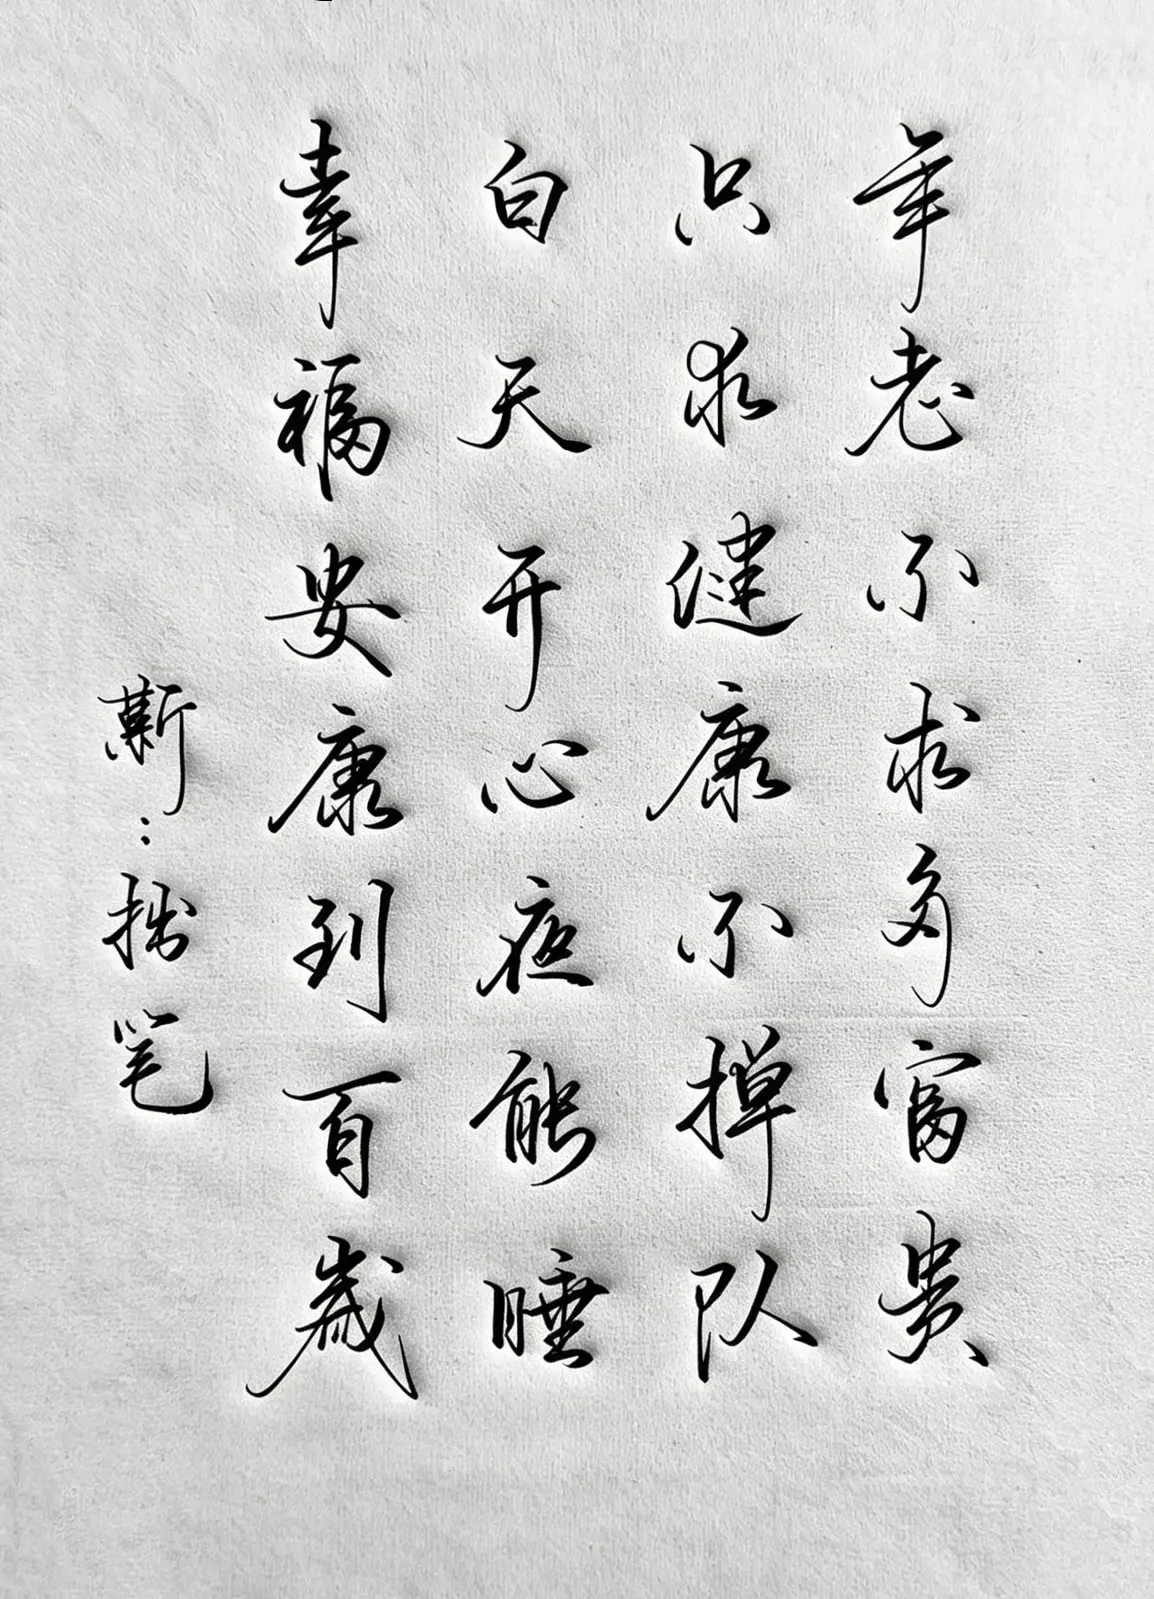 年老不求多富贵
只求健康不掉队
白天开心夜能睡
幸福安康到百歲
靳：拙笔